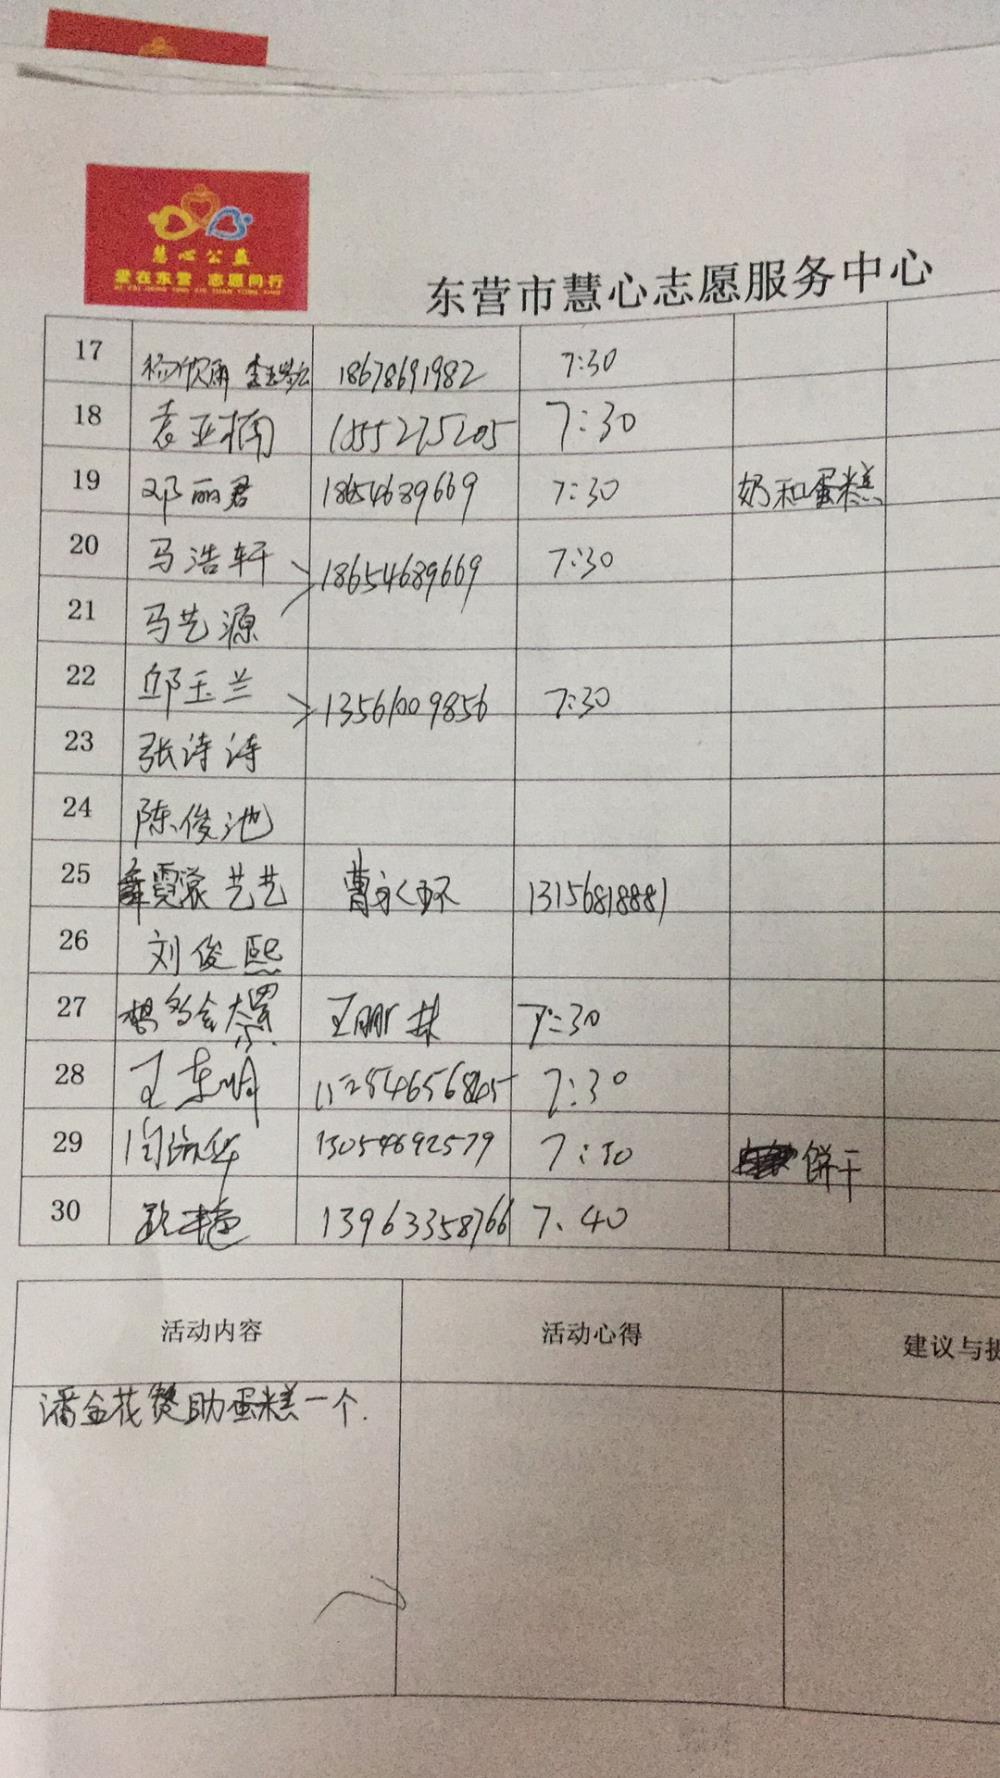 慧心公益
爱在东营 志愿同行
东营市慧心志愿服务中心
17 杨欣雨 18678691982 7:30
18 袁亚楠 7:30
19 邓丽君 18654689669 7:30 奶和蛋糕
20 马浩轩 18654689669 7:30
21 马艺源
22 邱玉兰 13561009856 7:30
23 张诗诗
24 陈俊池
25 薛霓裳 艺艺 曹永环 13156818881
26 刘俊熙
27 7:30
28 王东明 7:30
29 13054692579 7:50 饼干
30 13963358766 7.40
活动内容 活动心得 建议与
潘金花赞助蛋糕一个.